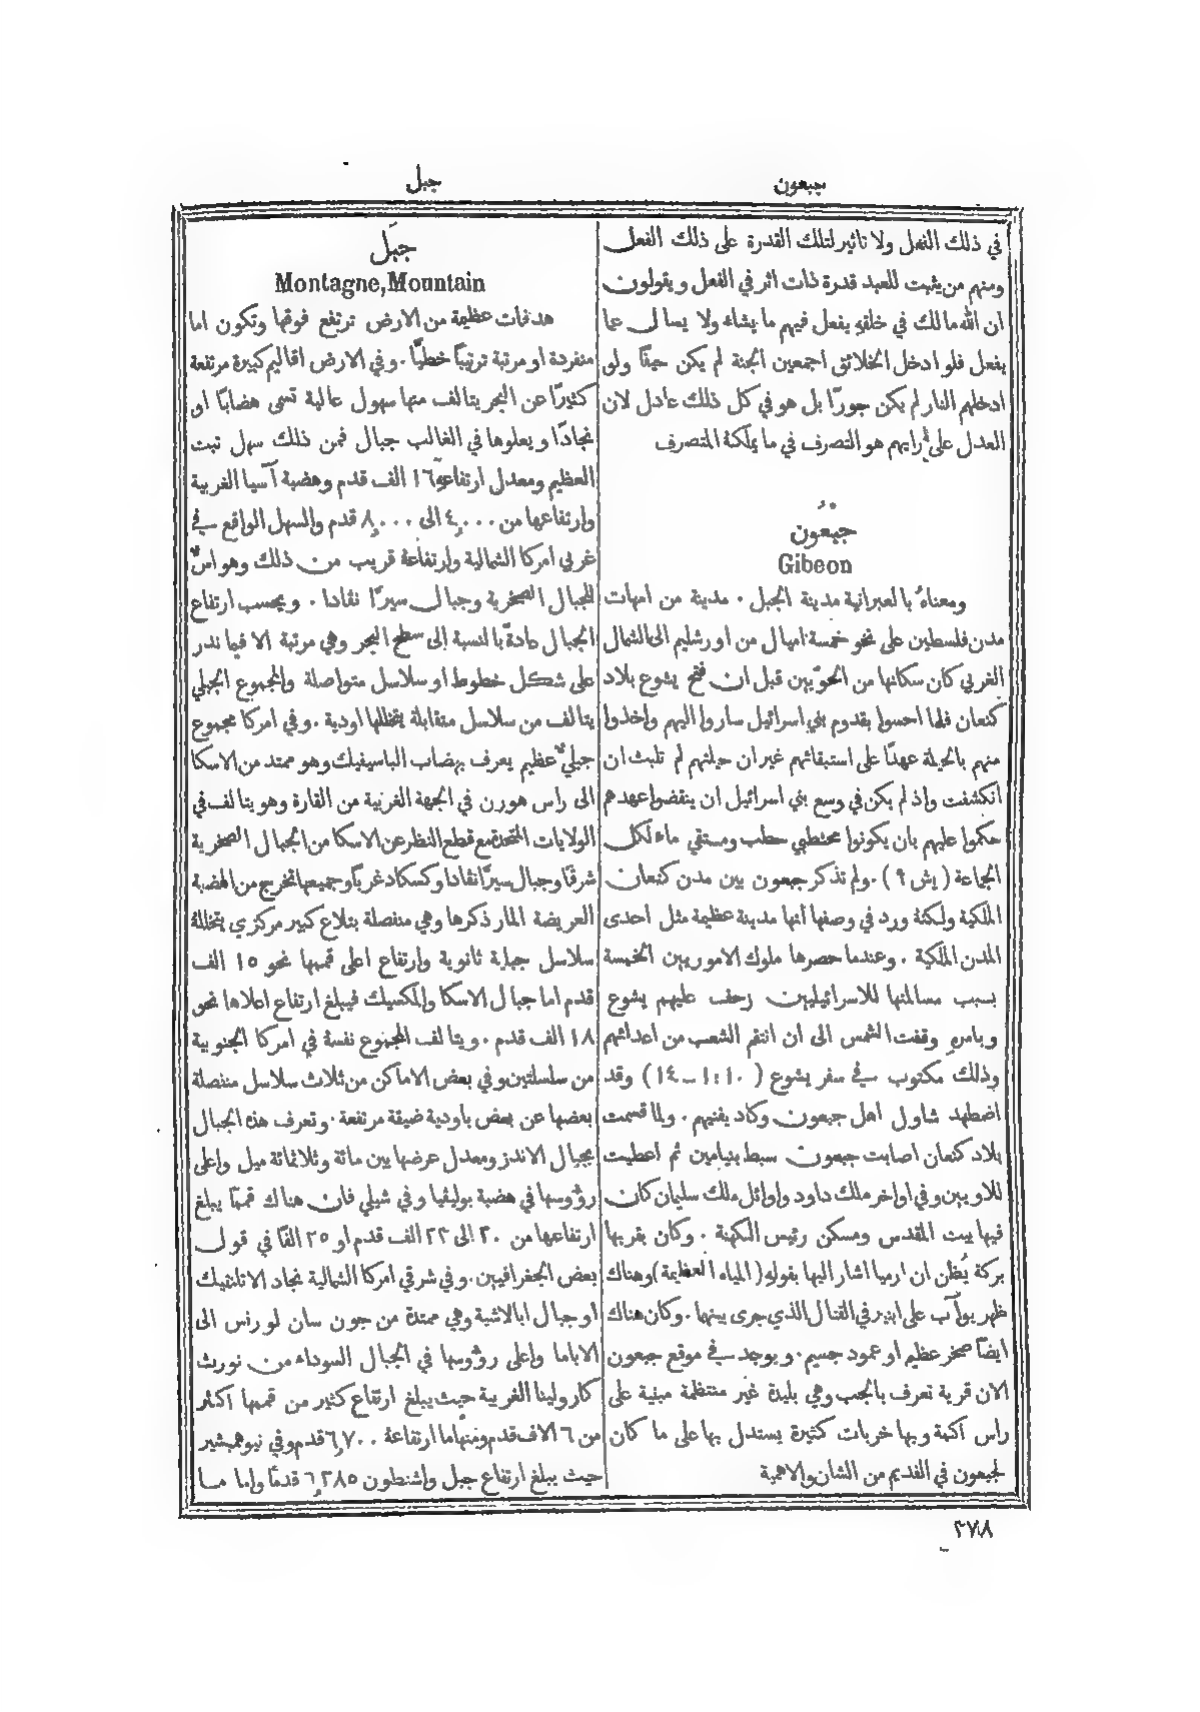 جبعون
جبل
في ذلك الفعل ولا تاثير لتلك القدرة على ذلك الفعل
ومنهم من يثبت للعبد قدرة ذات اثر في الفعل ويقولون
ان الله مالك في خلقهِ يفعل فيهم ما يشاء ولا يسال عما
يفعل فلو ادخل الخلائق اجمعين الجنة لم يكن حيفًا ولو
ادخلهم النار لم يكن جورًا بل هو في كل ذلك عادل لان
العدل على رايهم هو التصرف في ما يملكهُ المتصرف
جبعون
Gibeon
ومعناهُ بالعبرانية مدينة الجبل. مدينة من امهات
مدن فلسطين على نحو خمسة اميال من اورشليم الى الشمال
الغربي كان سكانها من الحوّيين قبل ان فتح يشوع بلاد
كنعان فلما احسوا بقدوم بني اسرائيل ساروا اليهم واخذوا
منهم بالحيلة عهدًا على استبقائهم غير ان حيلتهم لم تلبث ان
انكشفت واذ لم يكن في وسع بني اسرائيل ان ينقضوا عهدهم
حكموا عليهم بان يكونوا محتطبي حطب ومستقي ماء لكل
الجماعة (يش ٩). ولم تذكر جبعون بين مدن كنعان
الملكية ولكنهُ ورد في وصفها أنها مدينة عظيمة مثل احدى
المدن الملكية. وعندما حصرها ملوك الاموريين الخمسة
بسبب مسالمتها للاسرائيليين زحف عليهم يشوع
وبامرهِ وقفت الشمس الى ان انتقم الشعب من اعدائهم
وذلك مكتوب في سفر يشوع (١٠:١–١٤) وقد
اضطهد شاول اهل جبعون وكاد يفنيهم. ولما قسمت
بلاد كنعان اصابت جبعون سبط بنيامين ثم اعطيت
للاويين وفي اواخر ملك داود واوائل ملك سليمان كان
فيها بيت المقدس ومسكن رئيس الكهنة. وكان بقربها
بركة يُظن ان ارميا اشار اليها بقولهِ (المياه العظيمة) وهناك
ظهر يوآب على ابنير في القتال الذي جرى بينهما. وكان هناك
ايضًا صخر عظيم او عمود جسيم. ويوجد في موقع جبعون
الان قرية تعرف بالجب وهي بليدة غير منتظمة مبنية على
راس اكمة وبها خربات كثيرة يستدل بها على ما كان
لجبعون في القديم من الشان والاهمية
جَبَل
Montagne, Mountain
هدفات عظيمة من الارض ترتفع فوقها وتكون اما
منفردة او مرتبة ترتيبًا خطيًّا. وفي الارض اقاليم كبيرة مرتفعة
كثيرًا عن البحر يتالف منها سهول عالية تسمى هضابًا او
نجادًا ويعلوها في الغالب جبال فمن ذلك سهل تبت
العظيم ومعدل ارتفاعهِ ١٦ الف قدم وهضبة آسيا الغربية
وارتفاعها من ٤٫٠٠٠ الى ٨٫٠٠٠ قدم والسهل الواقع في
غربي امركا الشمالية وارتفاعهُ قريب من ذلك وهو اسٌّ
للجبال الصخرية وجبال سيرّا نڤادا. ويحسب ارتفاع
الجبال عادةً بالنسبة إلى سطح البحر وهي مرتبة الا فيما ندر
على شكل خطوط او سلاسل متواصلة والمجموع الجبلي
يتالف من سلاسل متقابلة يتخللها اودية. وفي امركا مجموع
جبليٌّ عظيم يعرف بهضاب الباسيفيك وهو ممتد من الاسكا
الى راس هورن في الجهة الغربية من القارة وهو يتالف في
الولايات المتحدة مع قطع النظر عن الاسكا من الجبال الصخرية
شرقًا وجبال سيرّا نڤادا وكسكاد غربًا وجميعها تخرج من الهضبة
العريضة المار ذكرها وهي منفصلة بتلاع كبير مركزي يتخللهُ
سلاسل جبلية ثانوية وارتفاع اعلى قممها نحو ١٥ الف
قدم اما جبال الاسكا والمكسيك فيبلغ ارتفاع اعلاها نحو
١٨ الف قدم. ويتالف المجموع نفسهُ في امركا الجنوبية
من سلسلتين وفي بعض الاماكن من ثلاث سلاسل منفصلة
بعضها عن بعض باودية ضيقة مرتفعة. وتعرف هذه الجبال
بجبال الاندز ومعدل عرضها بين مائة وثلاثمائة ميل واعلى
رؤوسها في هضبة بوليڤيا وفي شيلي فان هناك قممًا يبلغ
ارتفاعها من ٢٠ الى ٢٣ الف قدم أو ٢٥ الفًا في قول
بعض الجغرافيين. وفي شرقي امركا الشمالية نجاد الاتلنتيك
او جبال ابالاشية وهي ممتدة من جون سان لورنس الى
الاباما واعلى رؤوسها في الجبال السوداء من نورث
كارولينا الغربية حيث يبلغ ارتفاع كثير من قممها اكثر
من ٦ الاف قدم ومنها ما ارتفاعهُ ٦٫٧٠٠ قدم وفي نيو همبشير
حيث يبلغ ارتفاع جبل واشنطون ٦٫٢٨٥ قدمًا واما ما
٣٧٨